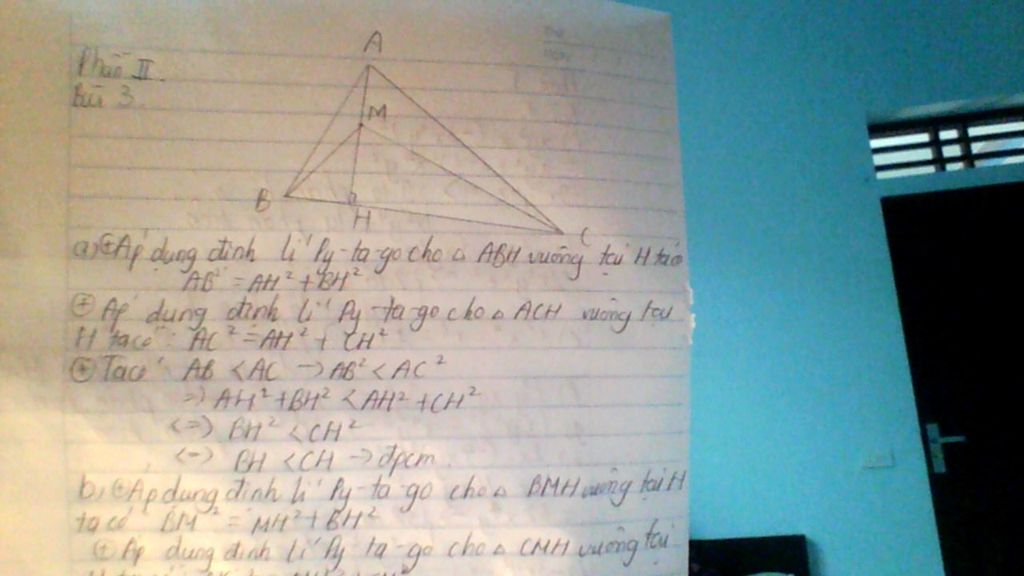 Phần II.
Bài 3.
A
M
B
H
C
a) + Áp dụng định lí Py-ta-go cho △ ABH vuông tại H ta có
AB² = AH² + BH²
+ Áp dụng định lí Py-ta-go cho △ ACH vuông tại
H ta có: AC² = AH² + CH²
+ Ta có: AB < AC → AB² < AC²
=> AH² + BH² < AH² + CH²
<=> BH² < CH²
<=> BH < CH → đpcm.
b) + Áp dụng định lí Py-ta-go cho △ BMH vuông tại H
ta có BM² = MH² + BH²
+ Áp dụng định lí Py-ta-go cho △ CMH vuông tại